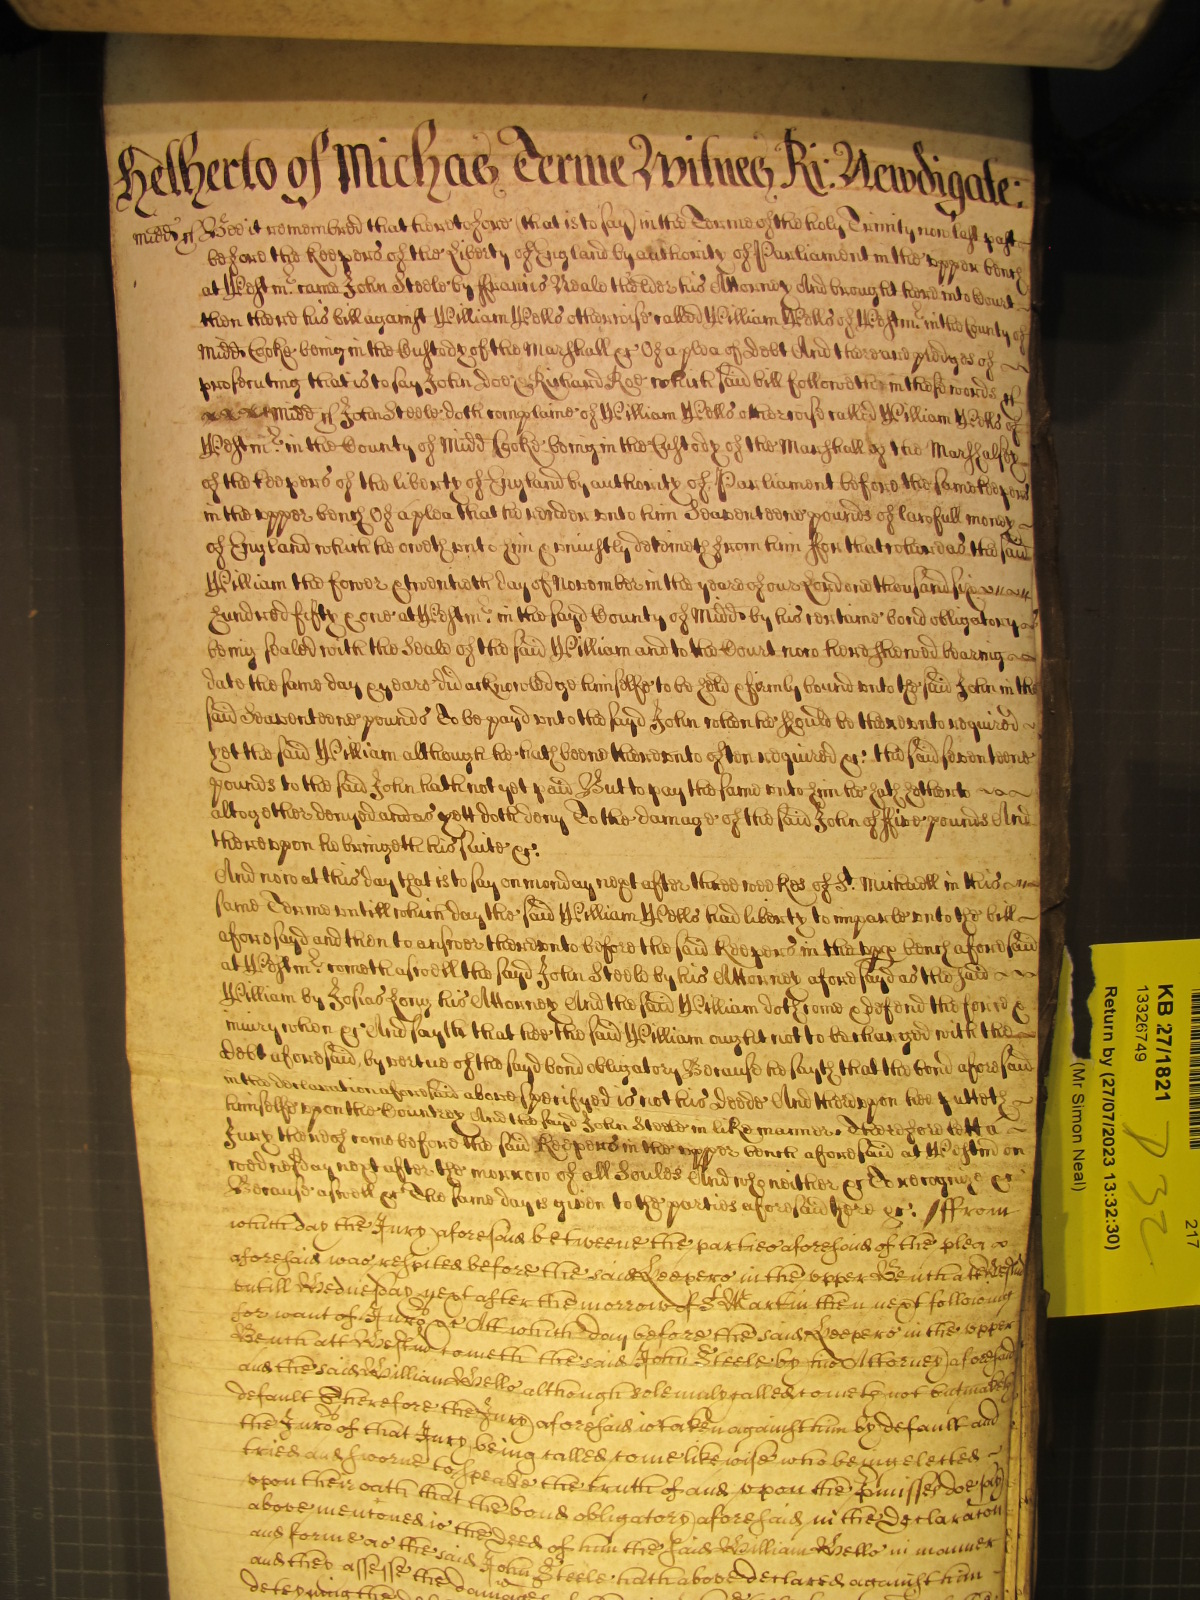 Hetherto of Michas Terme Witnes Ri: Newdigate:
Midd ss Bee it remembred that heretofore (that is to say) in the Terme of the holy Trinity now last past
before the Keepers of the Liberty of England by authority of Parliament in the upper bench
at Westmr. came John Steele by Francis Neale the elder his Attorney And brought here into Court
then there his bill against William Wells otherwise called William Wells of Westmr. in the County of
Midd Cooke being in the Custody of the Marshall &c Of a plea of Debt And there are pledges of
prosecuting that is to say John Doe & Richard Roe which said bill followeth in these words ss
Midd ss John Steele doth complaine of William Wells otherwise called William Wells of
Westmr. in the County of Midd Cooke being in the Custody of the Marshall of the Marshalsey
of the keepers of the liberty of England by authority of Parliament before the same keepers
in the upper bench Of a plea that he render unto him Seaventeene pounds of lawfull money
of England which he oweth unto him & uniustly deteineth from him ffor that whereas the said
William the fower & twentieth day of November in the yeare of our Lord one thousand six
hundred fifty & one at Westmr. in the sayd County of Midd by his certaine bond obligatory
being sealed with the Seale of the said William and to the Court now here shewed bearing
date the same day & yeare did acknowledge himselfe to be held & firmly bound unto the said John in the
said Seaventeene pounds To be payd unto the sayd John when he should be thereunto required
yet the said William although he hath beene thereunto often required &c: the said seventeene
pounds to the said John hath not yet paid But to pay the same unto him he hath hetherto
altogether denyed and as yett doth deny To the damage of the said John of ffive pounds And
thereupon he bringeth his suite &c:
And now at this day that is to say on monday next after three weekes of St. Michaell in this
same Terme untill which day the said William Wells had liberty to imparle unto the bill
aforesayd and then to answer thereunto before the said Keepers in the upp bench aforesaid
at Westmr. cometh aswell the sayd John Steele by his Attorney aforesayd as the said
William by Josias long his Attorney And the said William doth come & defend the force &
iniury when &c And sayth that hee the said William ought not to be charged with the
debt aforesaid, by vertue of the sayd bond obligatory Because he sayth that the bond aforesaid
in the declaration aforesaid above specifyed is not his deede And thereupon hee putteth
himselfe upon the Countrey And the sayd John Steele in like manner. Therefore lett a
Jury thereof come before the said Keepers in the upper bench aforesaid at Westmr on
wednesday next after the morrow of all Soules And who neither &c To recognize &c
Because aswell &c The same day is given to the parties aforesaid here &c: ffrom
which day the Jury aforesaid betweene the parties aforesaid of the plea
aforesaid was respited before the said Keepers in the upper Bench att Westmr
untill Wednesday next after the morrow of St Martin then next following
for want of Jurors &c Att which day before the said Keepers in the upper
Bench att Westmr cometh the said John Steele by his Attorney aforesaid
and the said William Wells although solemnly called cometh not but maketh
default Therefore the Jury aforesaid is taken against him by default and
the Jurors of that Jury being called come likewise who being elected
tried and sworne to speake the truth of and upon the pmisses doe say
upon their oath that the bond obligatory aforesaid in the Declaraton
above mentoned is the Deed of him the said William Wells in manner
and forme as the said John Steele hath above declared against him
and they assesse the damages
KB 27/1821
13326749
Return by (27/07/2023 13:32:30)
(Mr Simon Neal)
217